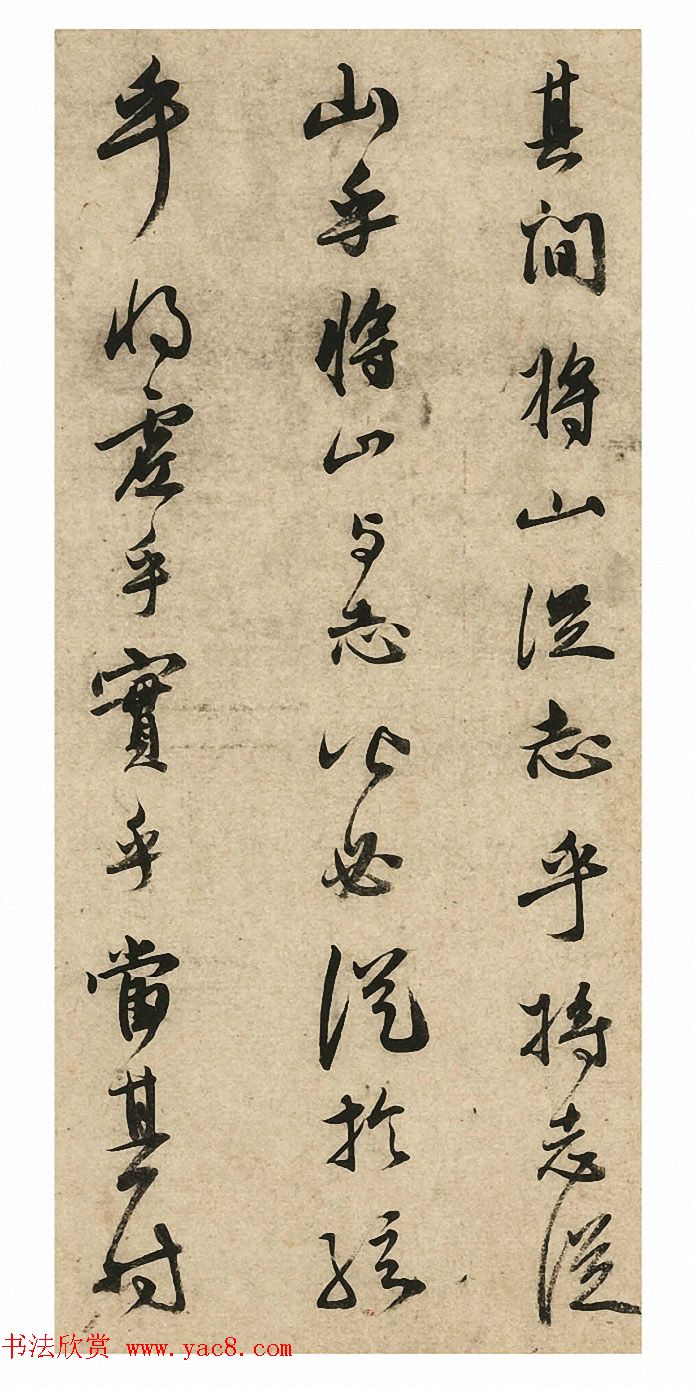 其間將山從志乎將志從
山乎將山与志必從於絃
乎將虛乎實乎當其时
书法欣赏 www.yac8.com